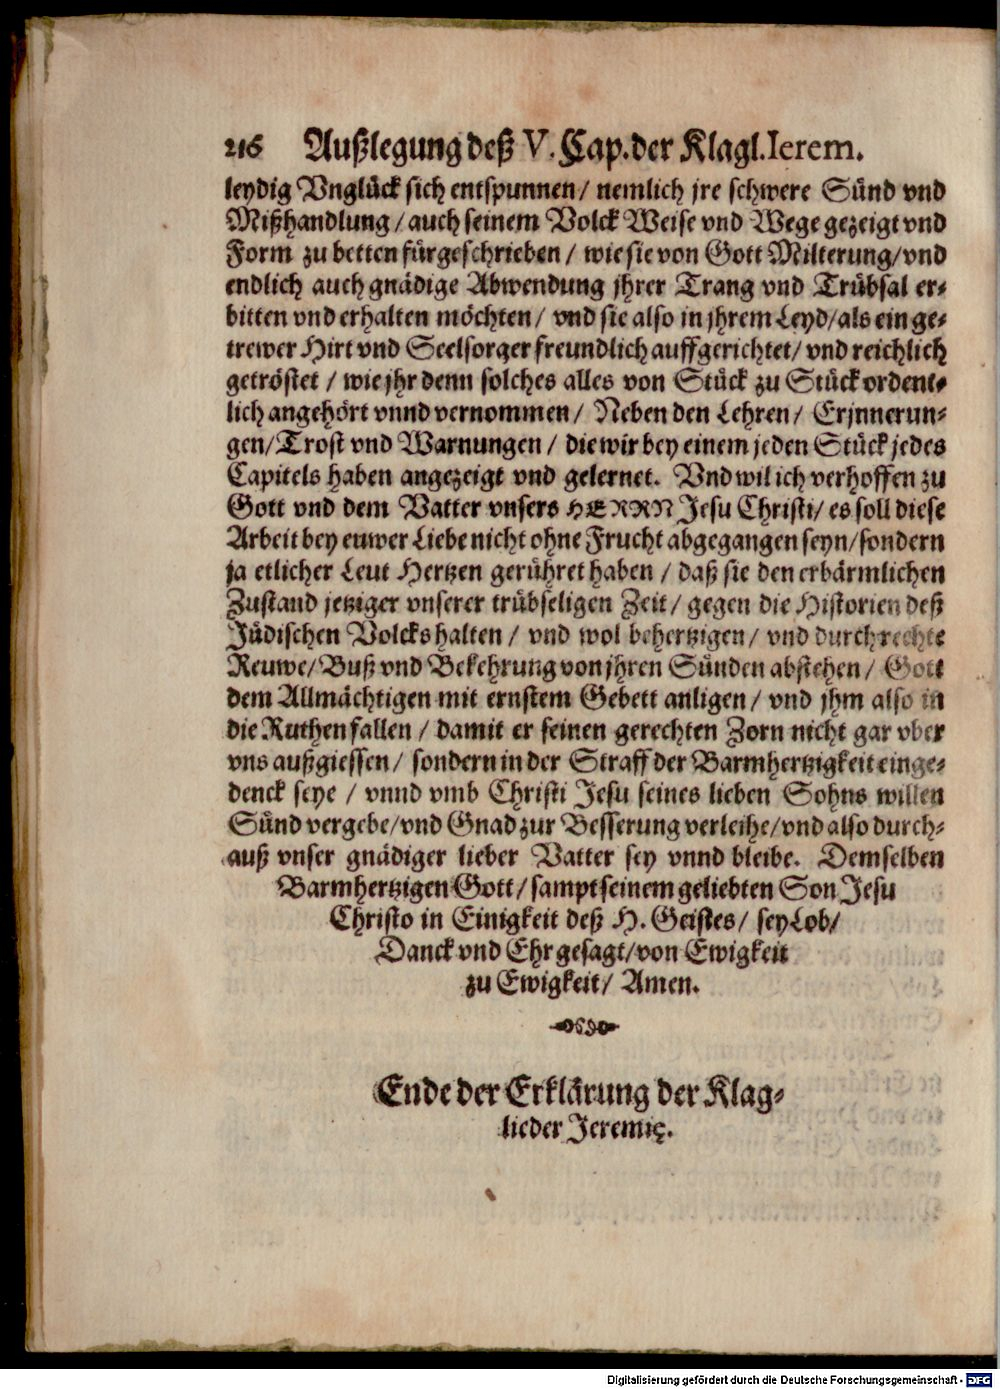 216 Außlegung deß V. Cap. der Klagl. Ierem.
leydig Vnglück sich entspunnen / nemlich jre schwere Sünd vnd
Mißhandlung / auch seinem Volck Weise vnd Wege gezeigt vnd
Form zu betten fürgeschrieben / wie sie von Gott Milterung / vnd
endlich auch gnädige Abwendung jhrer Trang vnd Trübsal er-
bitten vnd erhalten möchten / vnd sie also in jhrem Leyd / als ein ge-
trewer Hirt vnd Seelsorger freundlich auffgerichtet / vnd reichlich
getröstet / wie jhr denn solches alles von Stück zu Stück ordent-
lich angehört vnnd vernommen / Neben den Lehren / Erjnnerun-
gen / Trost vnd Warnungen / die wir bey einem jeden Stück jedes
Capitels haben angezeigt vnd gelernet. Vnd wil ich verhoffen zu
Gott vnd dem Vatter vnsers HERRN Jesu Christi / es soll diese
Arbeit bey euwer Liebe nicht ohne Frucht abgegangen seyn / sondern
ja etlicher Leut Hertzen gerühret haben / daß sie den erbärmlichen
Zustand jetziger vnserer trübseligen Zeit / gegen die Historien deß
Jüdischen Volcks halten / vnd wol behertzigen / vnd durch rechte
Reuwe / Buß vnd Bekehrung von jhren Sünden abstehen / Gott
dem Allmächtigen mit ernstem Gebett anligen / vnd jhm also in
die Ruthen fallen / damit er seinen gerechten Zorn nicht gar vber
vns außgiessen / sondern in der Straff der Barmhertzigkeit einge-
denck seye / vnnd vmb Christi Jesu seines lieben Sohns willen
Sünd vergebe / vnd Gnad zur Besserung verleihe / vnd also durch-
auß vnser gnädiger lieber Vatter sey vnnd bleibe. Demselben
Barmhertzigen Gott / sampt seinem geliebten Son Jesu
Christo in Einigkeit deß H. Geistes / sey Lob /
Danck vnd Ehr gesagt / von Ewigkeit
zu Ewigkeit / Amen.
Ende der Erklärung der Klag-
lieder Jeremię.
Digitalisierung gefördert durch die Deutsche Forschungsgemeinschaft - DFG